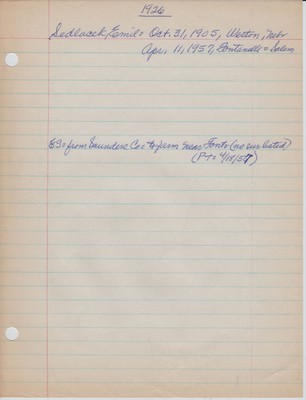 1926
Sedlacek, Emil = Oct. 31, 1905, Weston, Nebr
Apr. 11, 1957, Fontanelle = Salem
E3 = from Saunders Co = to farm near Font = (no sur listed)
(P-T = 4/18/57)